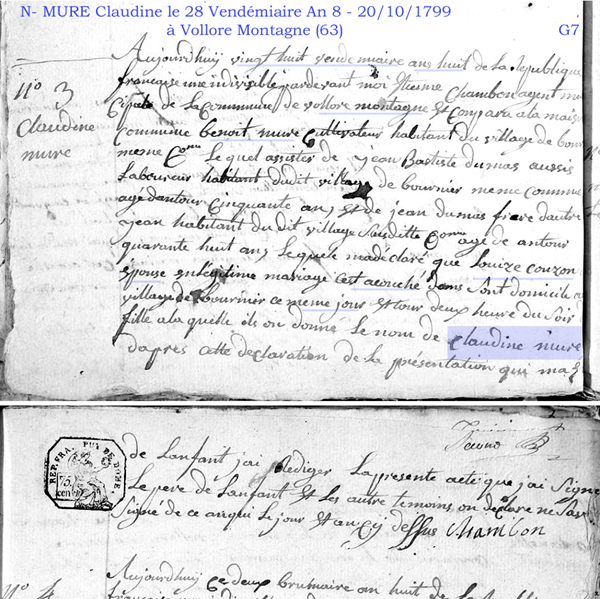 N- MURE Claudine le 28 Vendémiaire An 8 - 20/10/1799
à Vollore Montagne (63)
G7
nº 3
Claudine
mure
Aujourdhuy vingt huit vendemiaire ans huit de la Republique
francaise une indivisible pardevant moi Etienne Chambon agent mu
de la Commune de vollore montagne Est Comparu a la maison
Commune benoit mure Cultivateur habitant du village de bour
meme Comu Le quel assister de jean Bastiste dumas aussi
Laboureur habitant dudit village de bournier meme commu
agé dantour Cinquante ans Et de jean dumas frere dautre
jean habitant du dit village Susditte Comu agé de antour
quarante huit ans Le quele ma déclaré que Louize couzon
épouse en légitime mariage cest acouché dans Sont domicile a
village de bournier ce meme jour Est tour deux heure du Soir
fille a la quelle ils on donné Le nom de Claudine mure
dapres cette declaration de la présentation qui ma
REP. FRA. PUY DE DOME
de Lanfant jai Rediger La presente acte que jai Signe
Le pere de Lanfant Et Les autre temoins on declare ne Pas
Signé de ce anqui Le jour Et an cy dessus Chambon
nº 4
Aujourdhuy Ce deux brumaire an huit de la